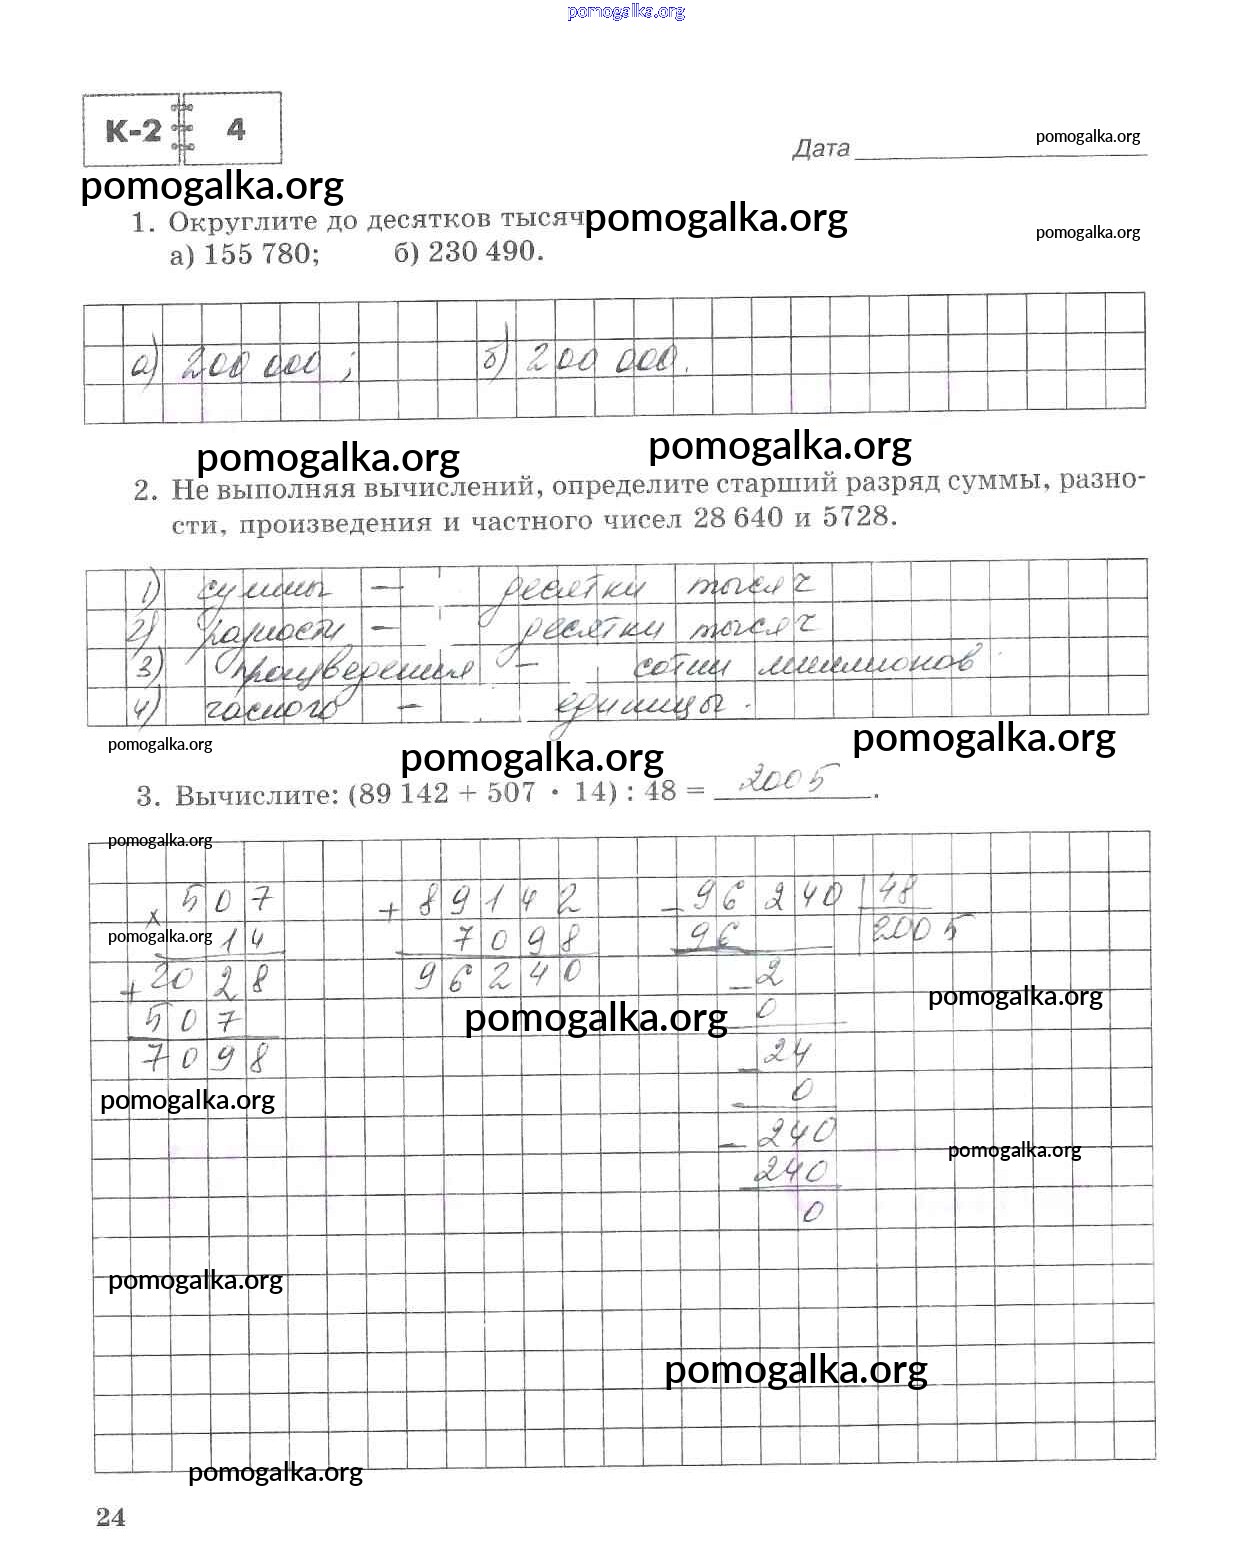 pomogalka.org
К-2 4
Дата pomogalka.org
pomogalka.org
1. Округлите до десятков тысяч pomogalka.org
pomogalka.org
а) 155 780; б) 230 490.
а) 200 000 ; б) 200 000.
pomogalka.org pomogalka.org
2. Не выполняя вычислений, определите старший разряд суммы, разно-
сти, произведения и частного чисел 28 640 и 5728.
1) суммы – десятки тысяч
2) разности – десятки тысяч
3) произведения – сотни миллионов
4) часного – единицы.
pomogalka.org pomogalka.org pomogalka.org
3. Вычислите: (89 142 + 507 · 14) : 48 = 2005.
pomogalka.org
× 507 + 89142 – 96 240 48
pomogalka.org 14 7098 96 2005
+ 2028 96240 – 2
pomogalka.org
507 pomogalka.org 0
7098 – 24
pomogalka.org 0
– 240
pomogalka.org
240
0
pomogalka.org
pomogalka.org
pomogalka.org
24